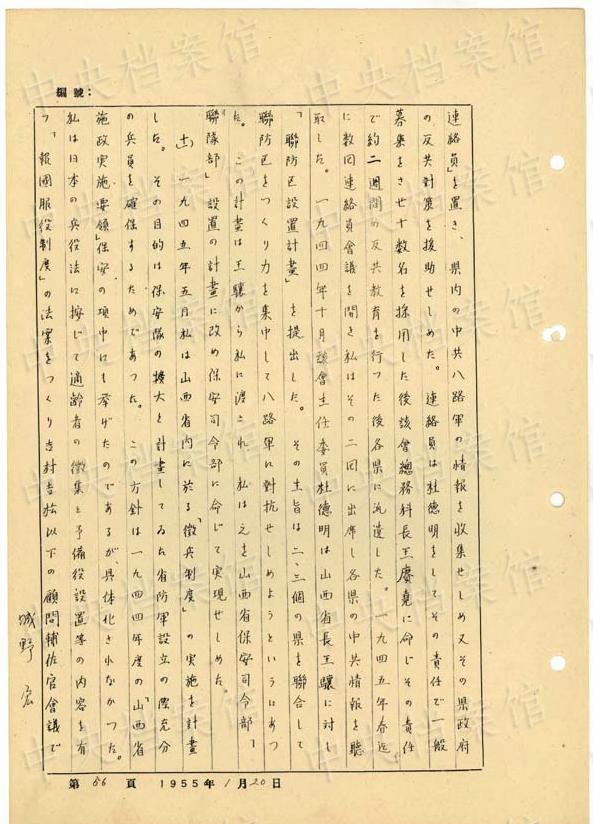 編號：
連絡員」を置き、県内の中共八路軍の情報を收集せしめ又その県政府
の反共対策を援助せしめた。連絡員は杜德明をしてその責任で一般
募集をさせ十数名を採用した後該會總務科長王慶堯に命じその責任
で約二週間の反共教育を行つた後各県に派遣した。一九四五年春迄
に数回連絡員會議を開き私はその二回に出席し各県の中共情報を聽
取した。一九四四年十月該會主任委員杜德明は山西省長王驤に対し
「聯防区設置計畫」を提出した。その主旨は二、三個の県を聯合して
聯防区をつくり力を集中して八路軍に対抗せしめようというにあつ
た。この計畫は王驤から私に渡され、私は之を山西省保安司令部「
聯隊部」設置の計畫に改め保安司令部に命じて実現せしめた。
㈩ 一九四五年五月私は山西省内に於る「徴兵制度」の実施を計畫
した。その目的は保安隊の擴大と計畫してゐた省防軍設立の際充分
の兵員を確保するためであつた。この方針は一九四四年度の「山西省
施政実施要領」保安の項中にも挙げたのであるが、具体化されなかつた。
私は日本の兵役法に按じて適齢者の徴集と予備役設置等の内容を有
つ「報國服役制度」の法案をつくり吉村吉松以下の顧問補佐官會議で
城野 宏
第 66 頁 1955年 1月20日
中央档案馆